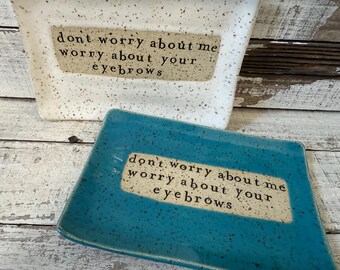 don't worry about me
worry about your
eyebrows
don't worry about me
worry about your
eyebrows